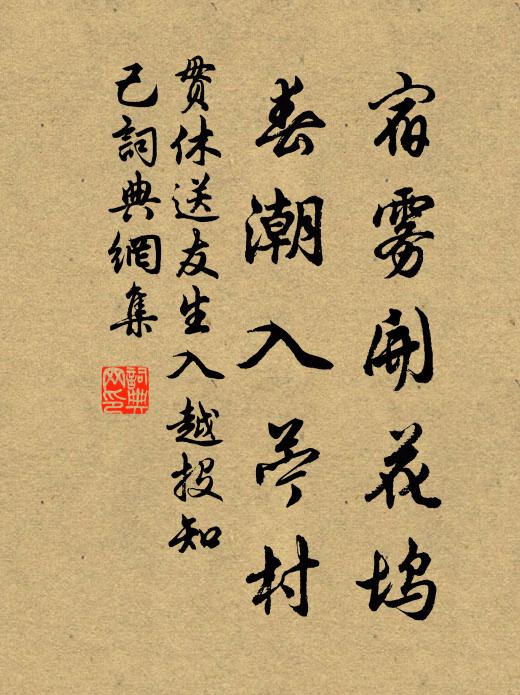 宿雾開花坞
春潮入苧村
贯休送友生入越投知
己詞典網集
詞典
网印